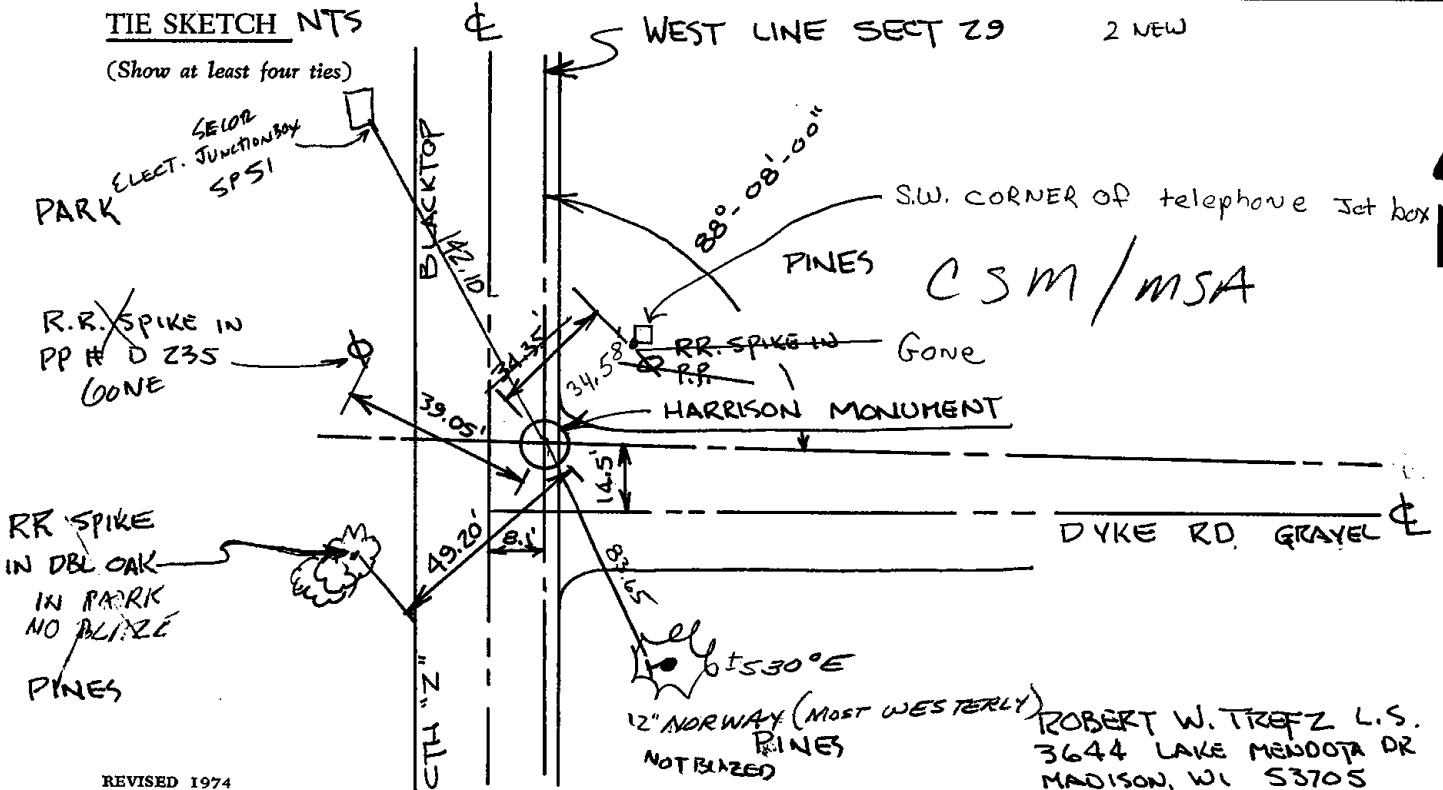 TIE SKETCH NTS
(Show at least four ties)
℄
WEST LINE SECT 29
2 NEW
ELECT. JUNCTION BOX
SP51
PARK
BLACKTOP
142.10
88°-08'-00"
S.W. CORNER OF telephone Jct box
PINES
CSM/MSA
R.R. SPIKE IN
PP # D 235
GONE
34.35'
34.58'
RR. SPIKE IN
P.P.
Gone
HARRISON MONUMENT
39.05'
14.5'
8.1'
49.20'
83.65
DYKE RD. GRAVEL ℄
RR SPIKE
IN DBL OAK
IN PARK
NO BLAZE
PINES
CTH "Z"
±S30°E
12" NORWAY (MOST WESTERLY)
PINES
NOT BLAZED
ROBERT W. TREFZ L.S.
3644 LAKE MENDOTA DR
MADISON, WI 53705
REVISED 1974